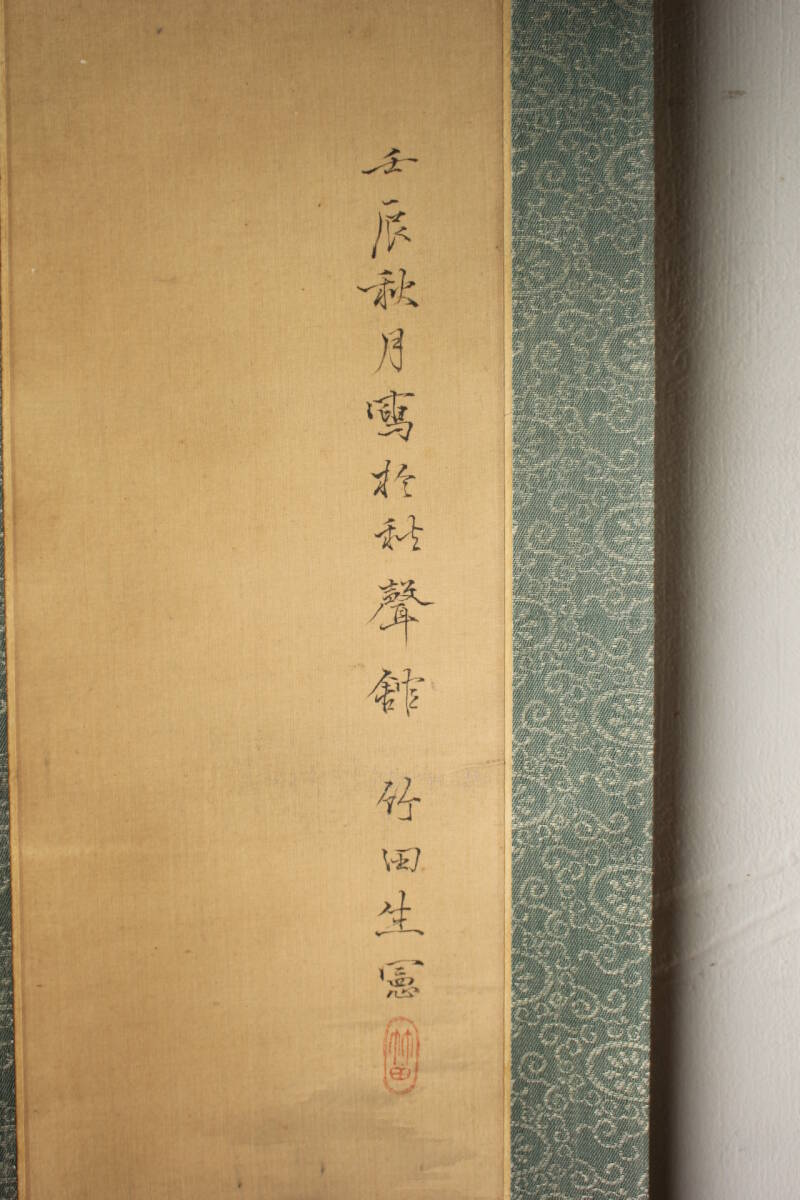 壬辰秋月寫於秋聲館 竹田生憲
竹田